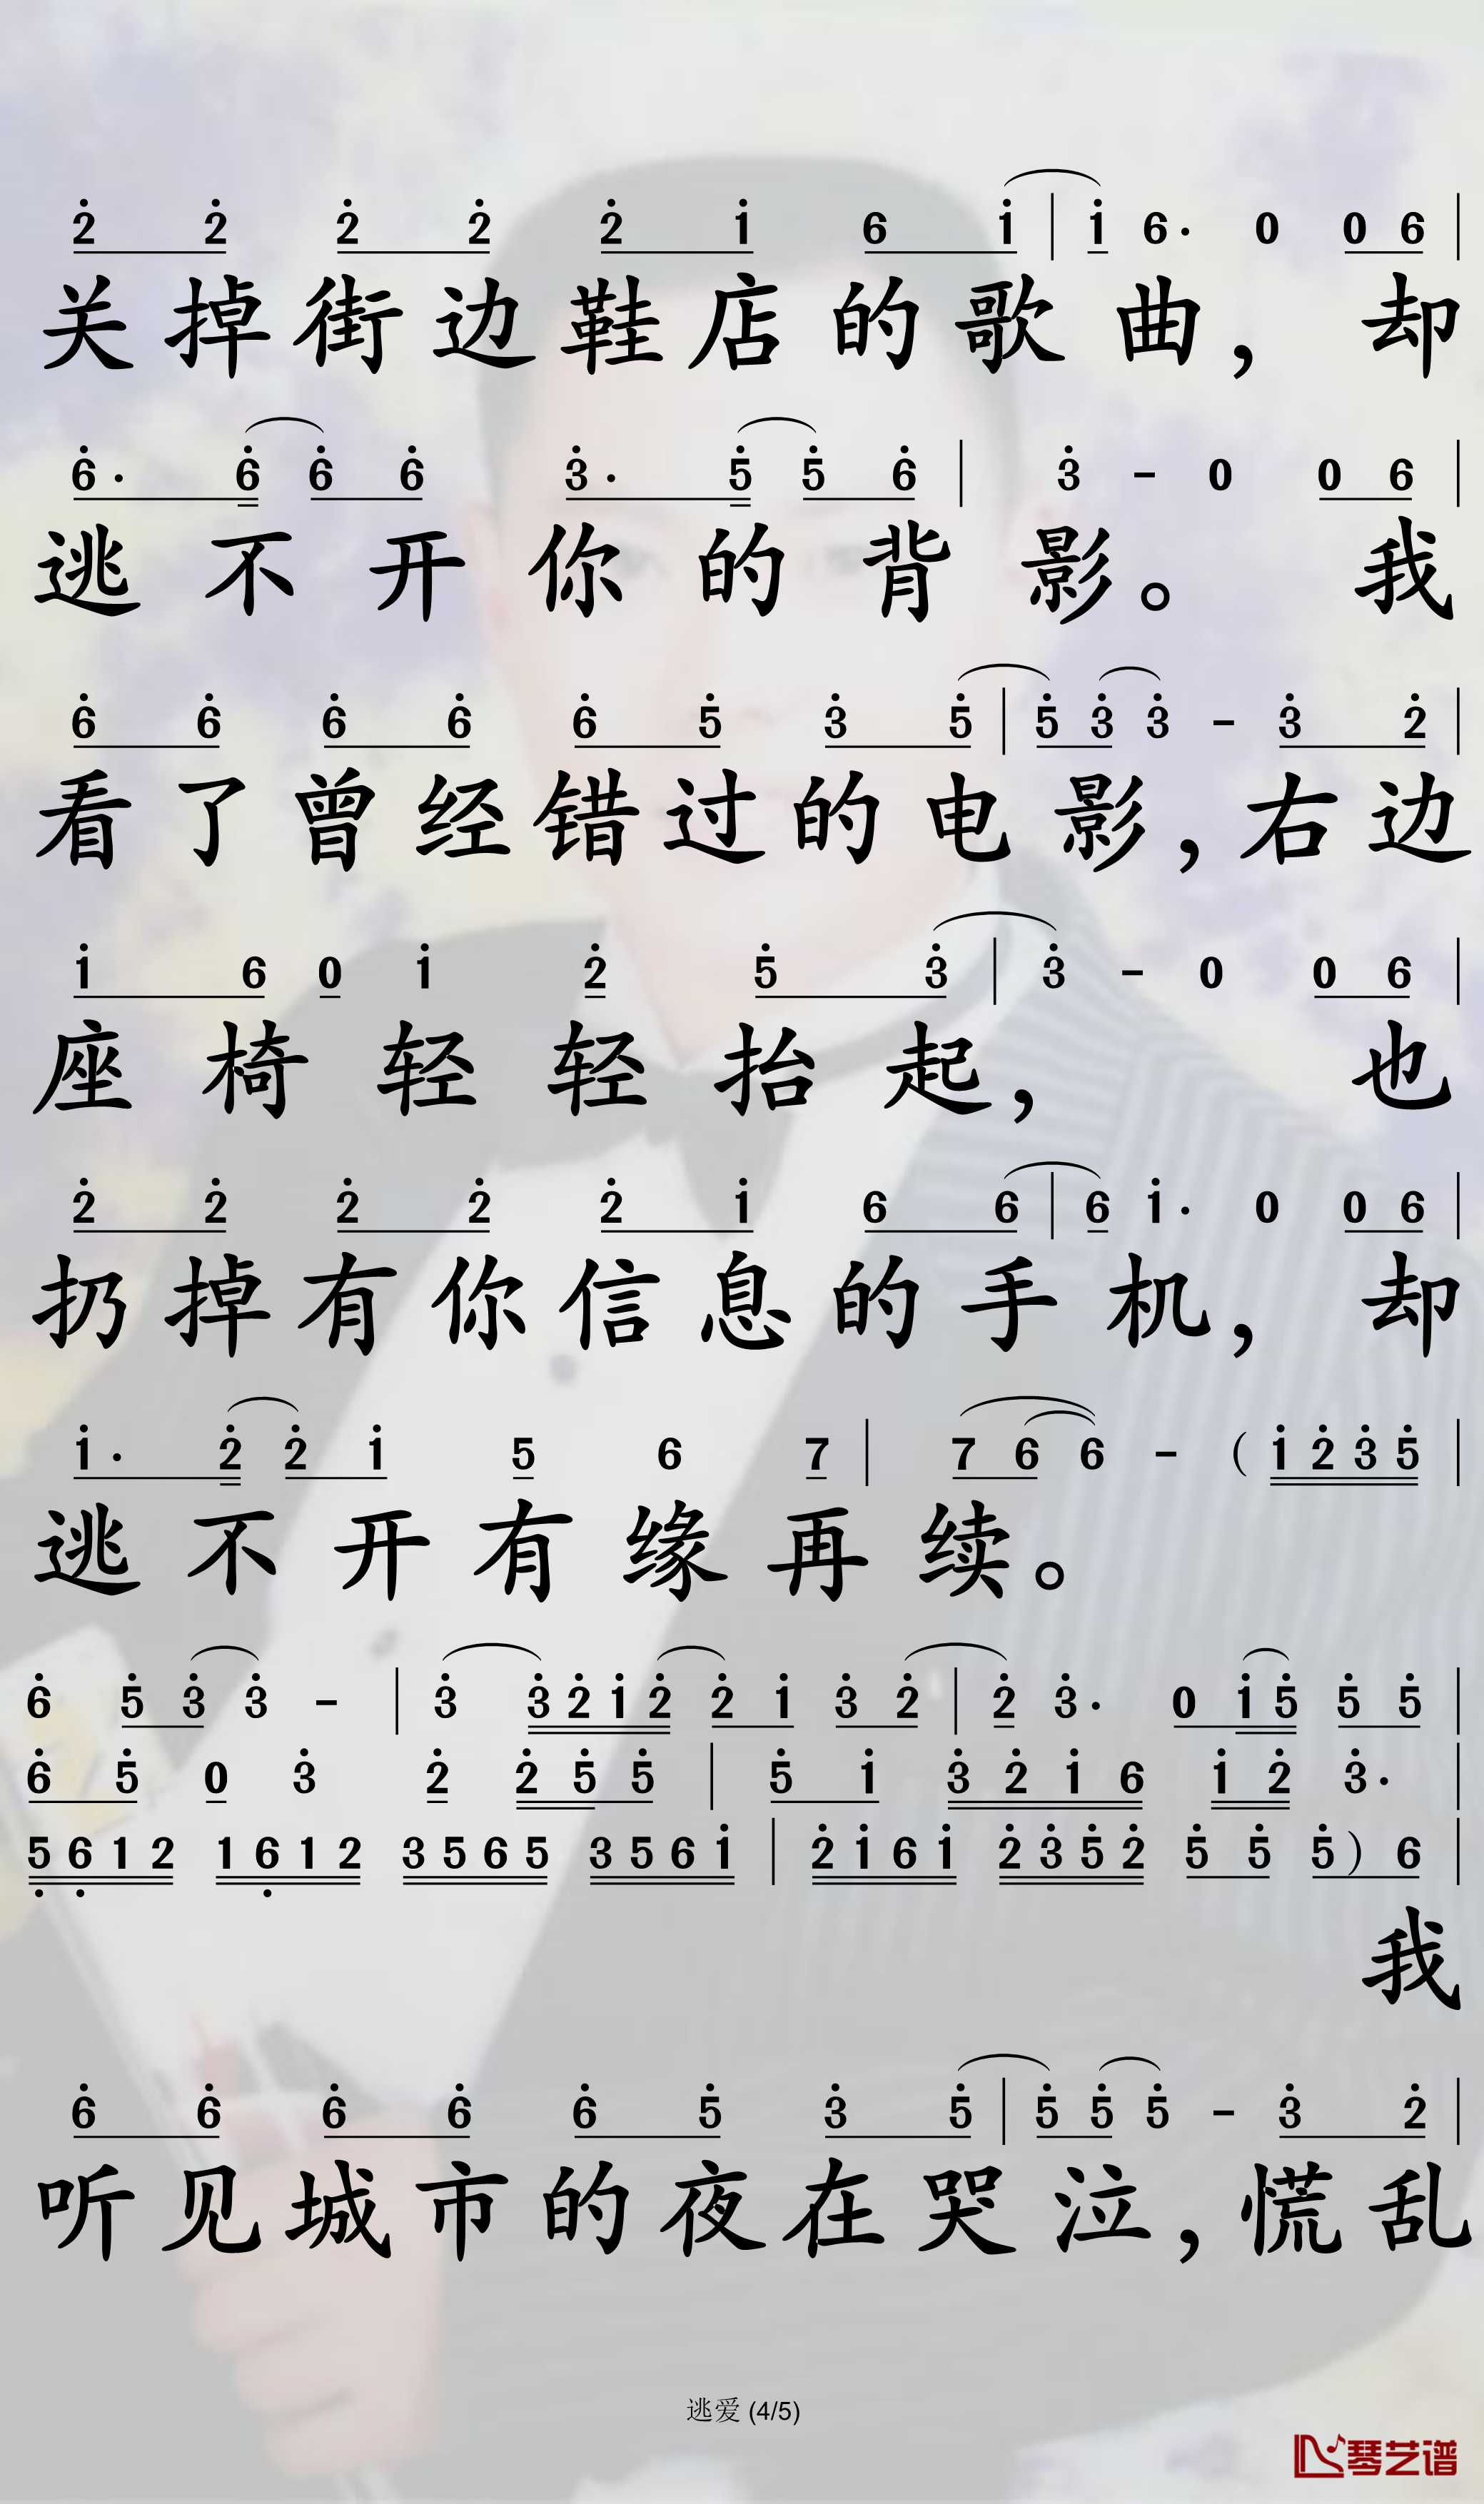 2̇ 2̇ 2̇ 2̇ 2̇ 1̇ 6 1̇ | 1̇ 6· 0 0 6 |
关掉街边鞋店的歌曲，却
6̇· 6̇ 6̇ 6̇ 3̇· 5̇ 5̇ 6̇ | 3̇ - 0 0 6 |
逃不开你的背影。我
6̇ 6̇ 6̇ 6̇ 6̇ 5̇ 3̇ 5̇ | 5̇ 3̇ 3̇ - 3̇ 2̇ |
看了曾经错过的电影，右边
1̇ 6 0 1̇ 2̇ 5̇ 3̇ | 3̇ - 0 0 6 |
座椅轻轻抬起，也
2̇ 2̇ 2̇ 2̇ 2̇ 1̇ 6 6 | 6 1̇· 0 0 6 |
扔掉有你信息的手机，却
1̇· 2̇ 2̇ 1̇ 5 6 7 | 7 6 6 - （1̇ 2̇ 3̇ 5̇ |
逃不开有缘再续。
6̇ 5̇ 3̇ 3̇ - | 3̇ 3̇ 2̇ 1̇ 2̇ 2̇ 1̇ 3̇ 2̇ | 2̇ 3̇· 0 1̇ 5̇ 5̇ 5̇ |
6̇ 5̇ 0 3̇ 2̇ 2̇ 5̇ 5̇ | 5̇ 1̇ 3̇ 2̇ 1̇ 6 1̇ 2̇ 3̇· |
5̣ 6̣ 1 2 1 6̣ 1 2 3 5 6 5 3 5 6 1̇ | 2̇ 1̇ 6 1̇ 2̇ 3̇ 5̇ 2̇ 5̇ 5̇ 5̇） 6 |
我
6̇ 6̇ 6̇ 6̇ 6̇ 5̇ 3̇ 5̇ | 5̇ 5̇ 5̇ - 3̇ 2̇ |
听见城市的夜在哭泣，慌乱
逃爱 (4/5)
琴艺谱